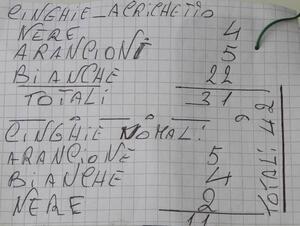 CINGHIE_ACRICHETTO
NERE 4
ARANCIONI 5
BIANCHE 22
TOTALI 31
9
CINGHIE NOMALI:
ARANCIONE 5
BIANCHE 4
NERE 2
11
TOTALI 42